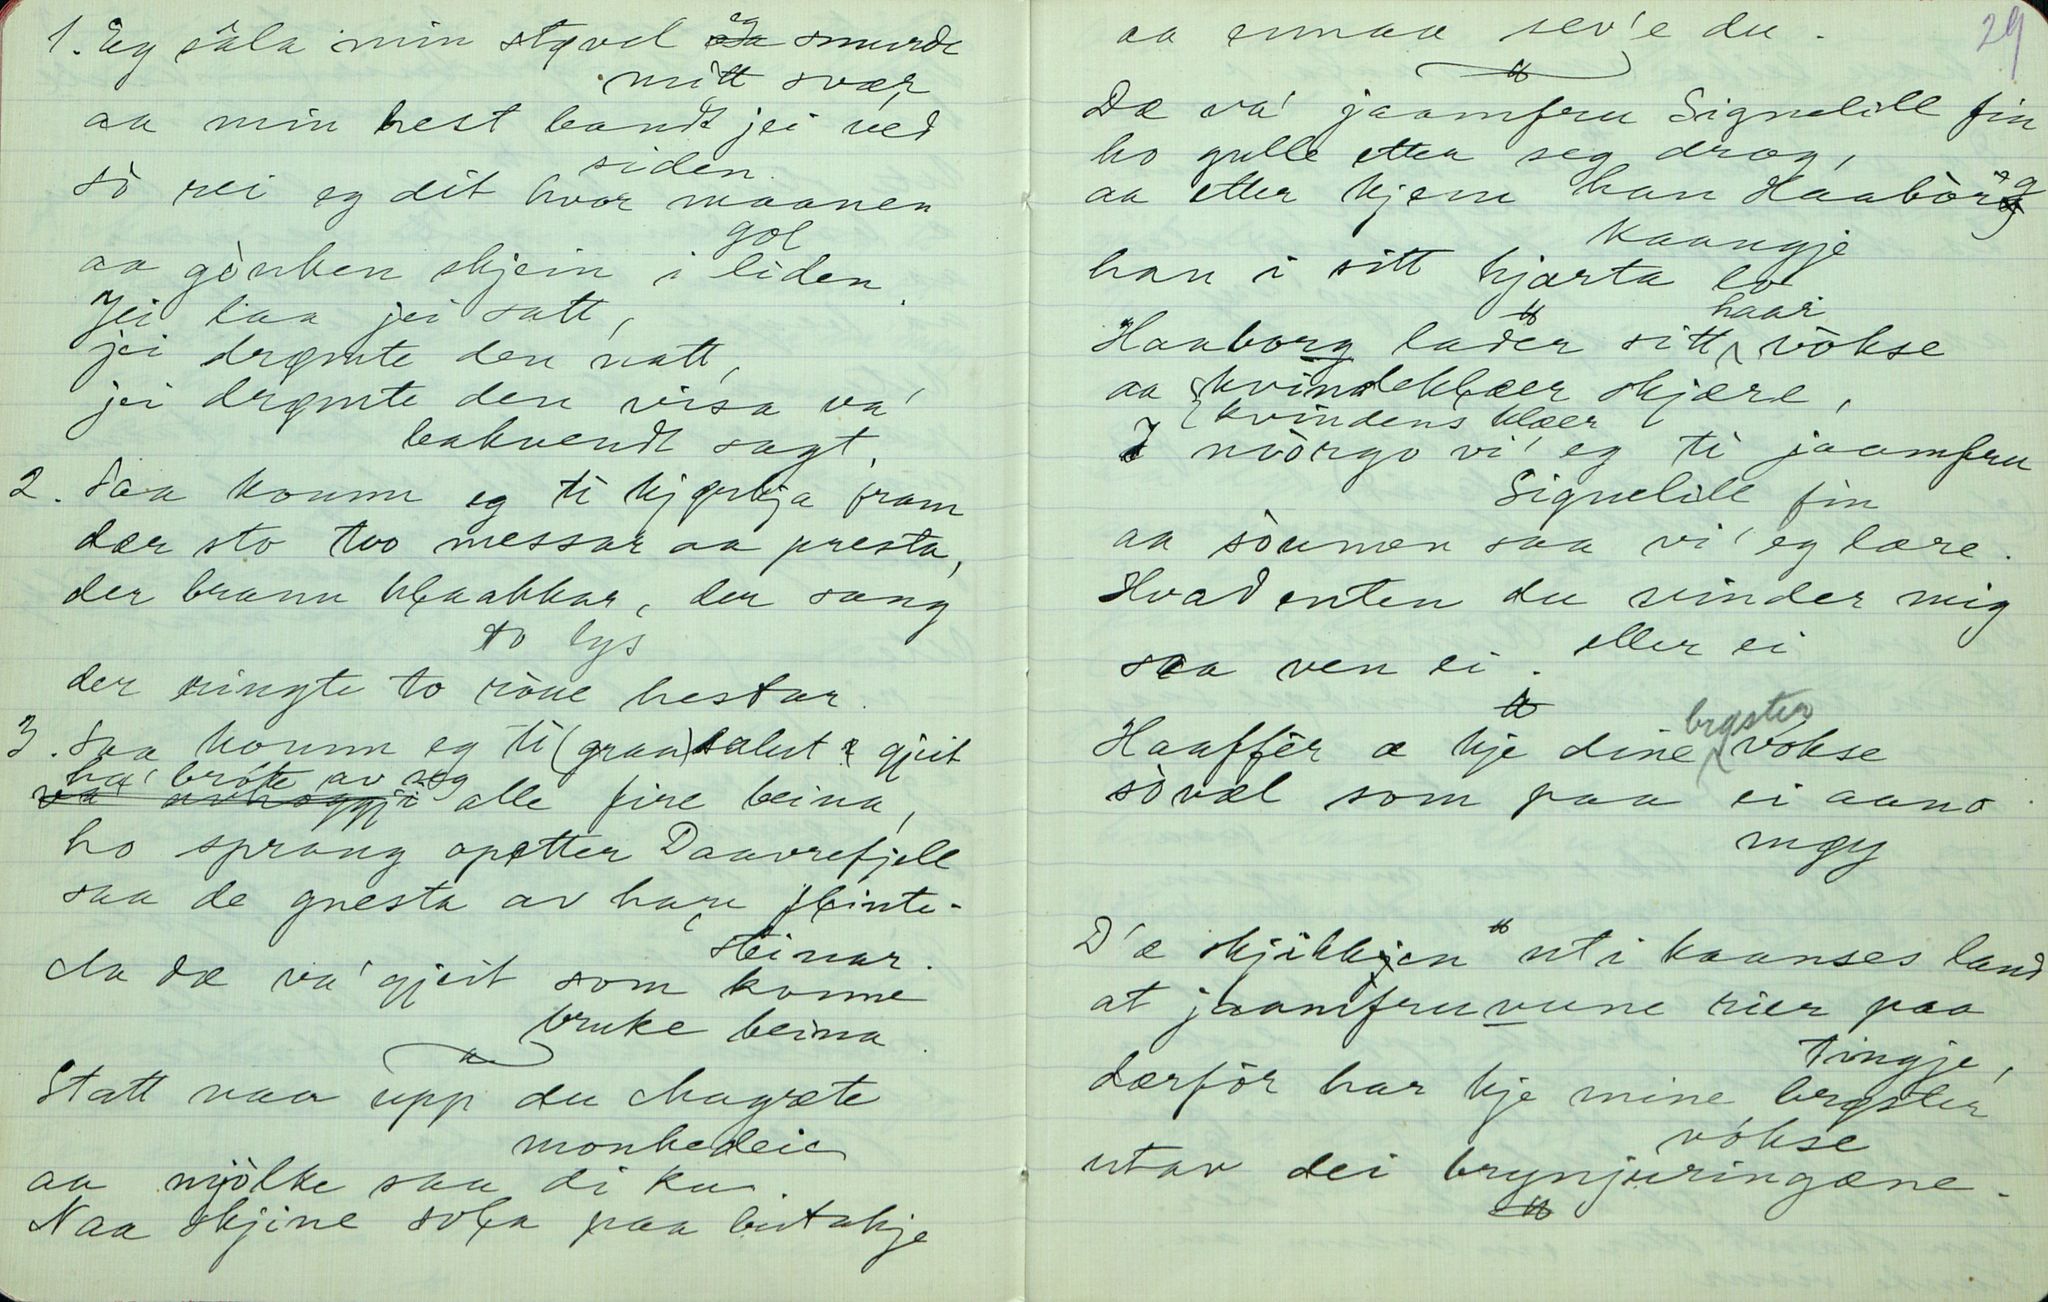 1. Eg sala min støvel eg smurde
mitt svær
aa min hest bandt jei ved
siden
sò rei eg dit hvor maanen
gol
aa gòuken skjein i liden.
Jei laa jei satt,
jei drømte den natt,
jei drømte den visa va'
bakvendt sagt.
2. Saa koumm eg ti kjørkja fram
dær sto two messar aa presta,
der brann klaakkar, der sang
to lys
der ringte to ròue hestar.
3. Saa koumm eg ti (graa) halut gjeit
ha' bròte av seg
alle fire beina,
ho sprang opetter Daavrefjell
saa de gnesta av hare flinte-
steinar.
Ja dæ va' gjeit som konne
bruke beina.
Statt naa upp du Magræte
monkedeie
aa mjòlke saa di ku.
Naa skjine sola paa butakje
aa ennaa sev'e du.
29
Dæ va' jaamfru Signelill fin
ho gulle etter seg drog,
aa etter kjem han Haabòrg
kaangje
han i sitt hjarta lo.
Haaborg lader sitt haar vòkse
aa kvindeklæer skjære,
kvindens klæer
I nòrgo vi' eg ti jaamfru
Signelill fin
aa sòumen saa vi' eg lære.
Hvad enten du vinder mig
eller ei
saa ven ei.
Haaffèr æ kje dine brøster vokse
sòvæl som paa ei aano
møy
D'æ skjikkjen uti kaanses land
at jaamfruvune rier paa
tingje,
dærfòr har kje mine brøster
vòkse
utav dei brynjuringæne.